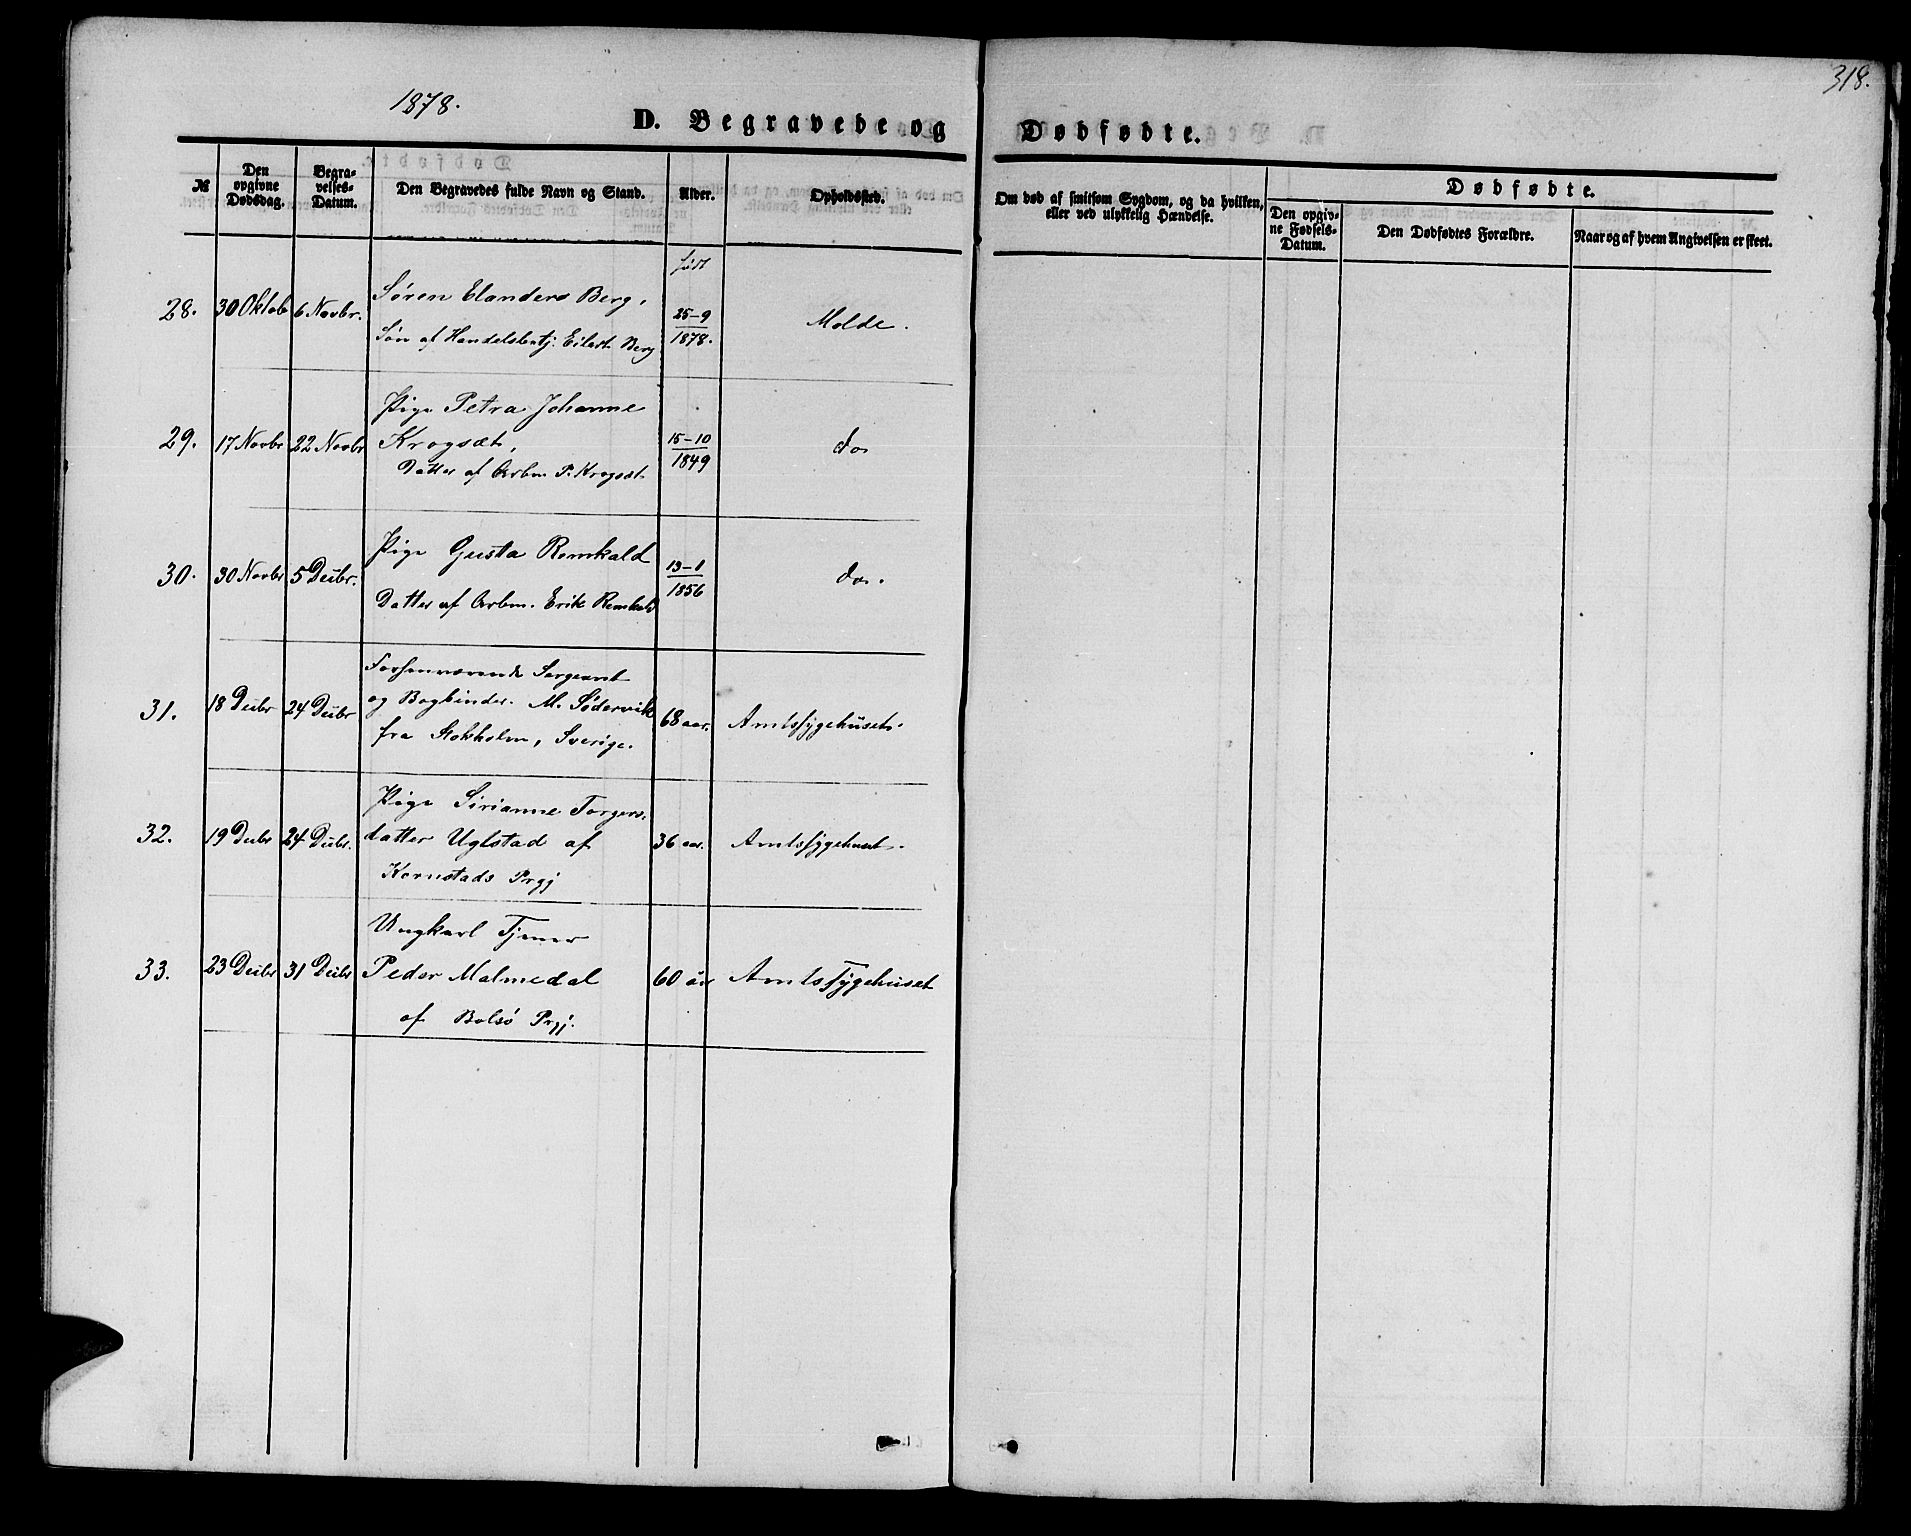 1878.
318.
D. Begravede og Dødfødte.
№
Den opgivne Dødsdag.
Begravelses-Datum.
Den Begravedes fulde Navn og Stand.
Alder.
Opholdssted.
Om død af smitsom Sygdom, og da hvilken, eller ved ulykkelig Hændelse.
Dødfødte.
Den opgivne Fødsels-Datum.
Den Dødfødtes Forældre.
Naar og af hvem Angivelsen er skeet.
født
28. 30 Oktob 6 Novbr. Søren Elanders Berg, 25-9 1878. Molde.
Søn af Handelsbetj. Eilert Berg
29. 17 Novbr 22 Novbr Pige Petra Johanne 15-10 1849 do
Krogsæt,
Datter af Arbm P. Krogsæt
30. 30 Novbr 5 Decbr. Pige Gusta Romkald 13-1 1856 do.
Datter af Arbm. Erik Romkald
31. 18 Decbr 24 Decbr Forhenværende Sergeant 68 aar. Amtssygehuset.
og Bogbinder M. Södervik
fra Stokholm, Sverige.
32. 19 Decbr 24 Decbr. Pige Sirianne Torgers- 36 aar. Amtssygehuset.
datter Uglstad af
Kornstads Prgj
33. 23 Decbr 31 Decbr Ungkarl Tjener 60 år Amtssygehuset
Peder Malmedal
af Bolsö Prgj.